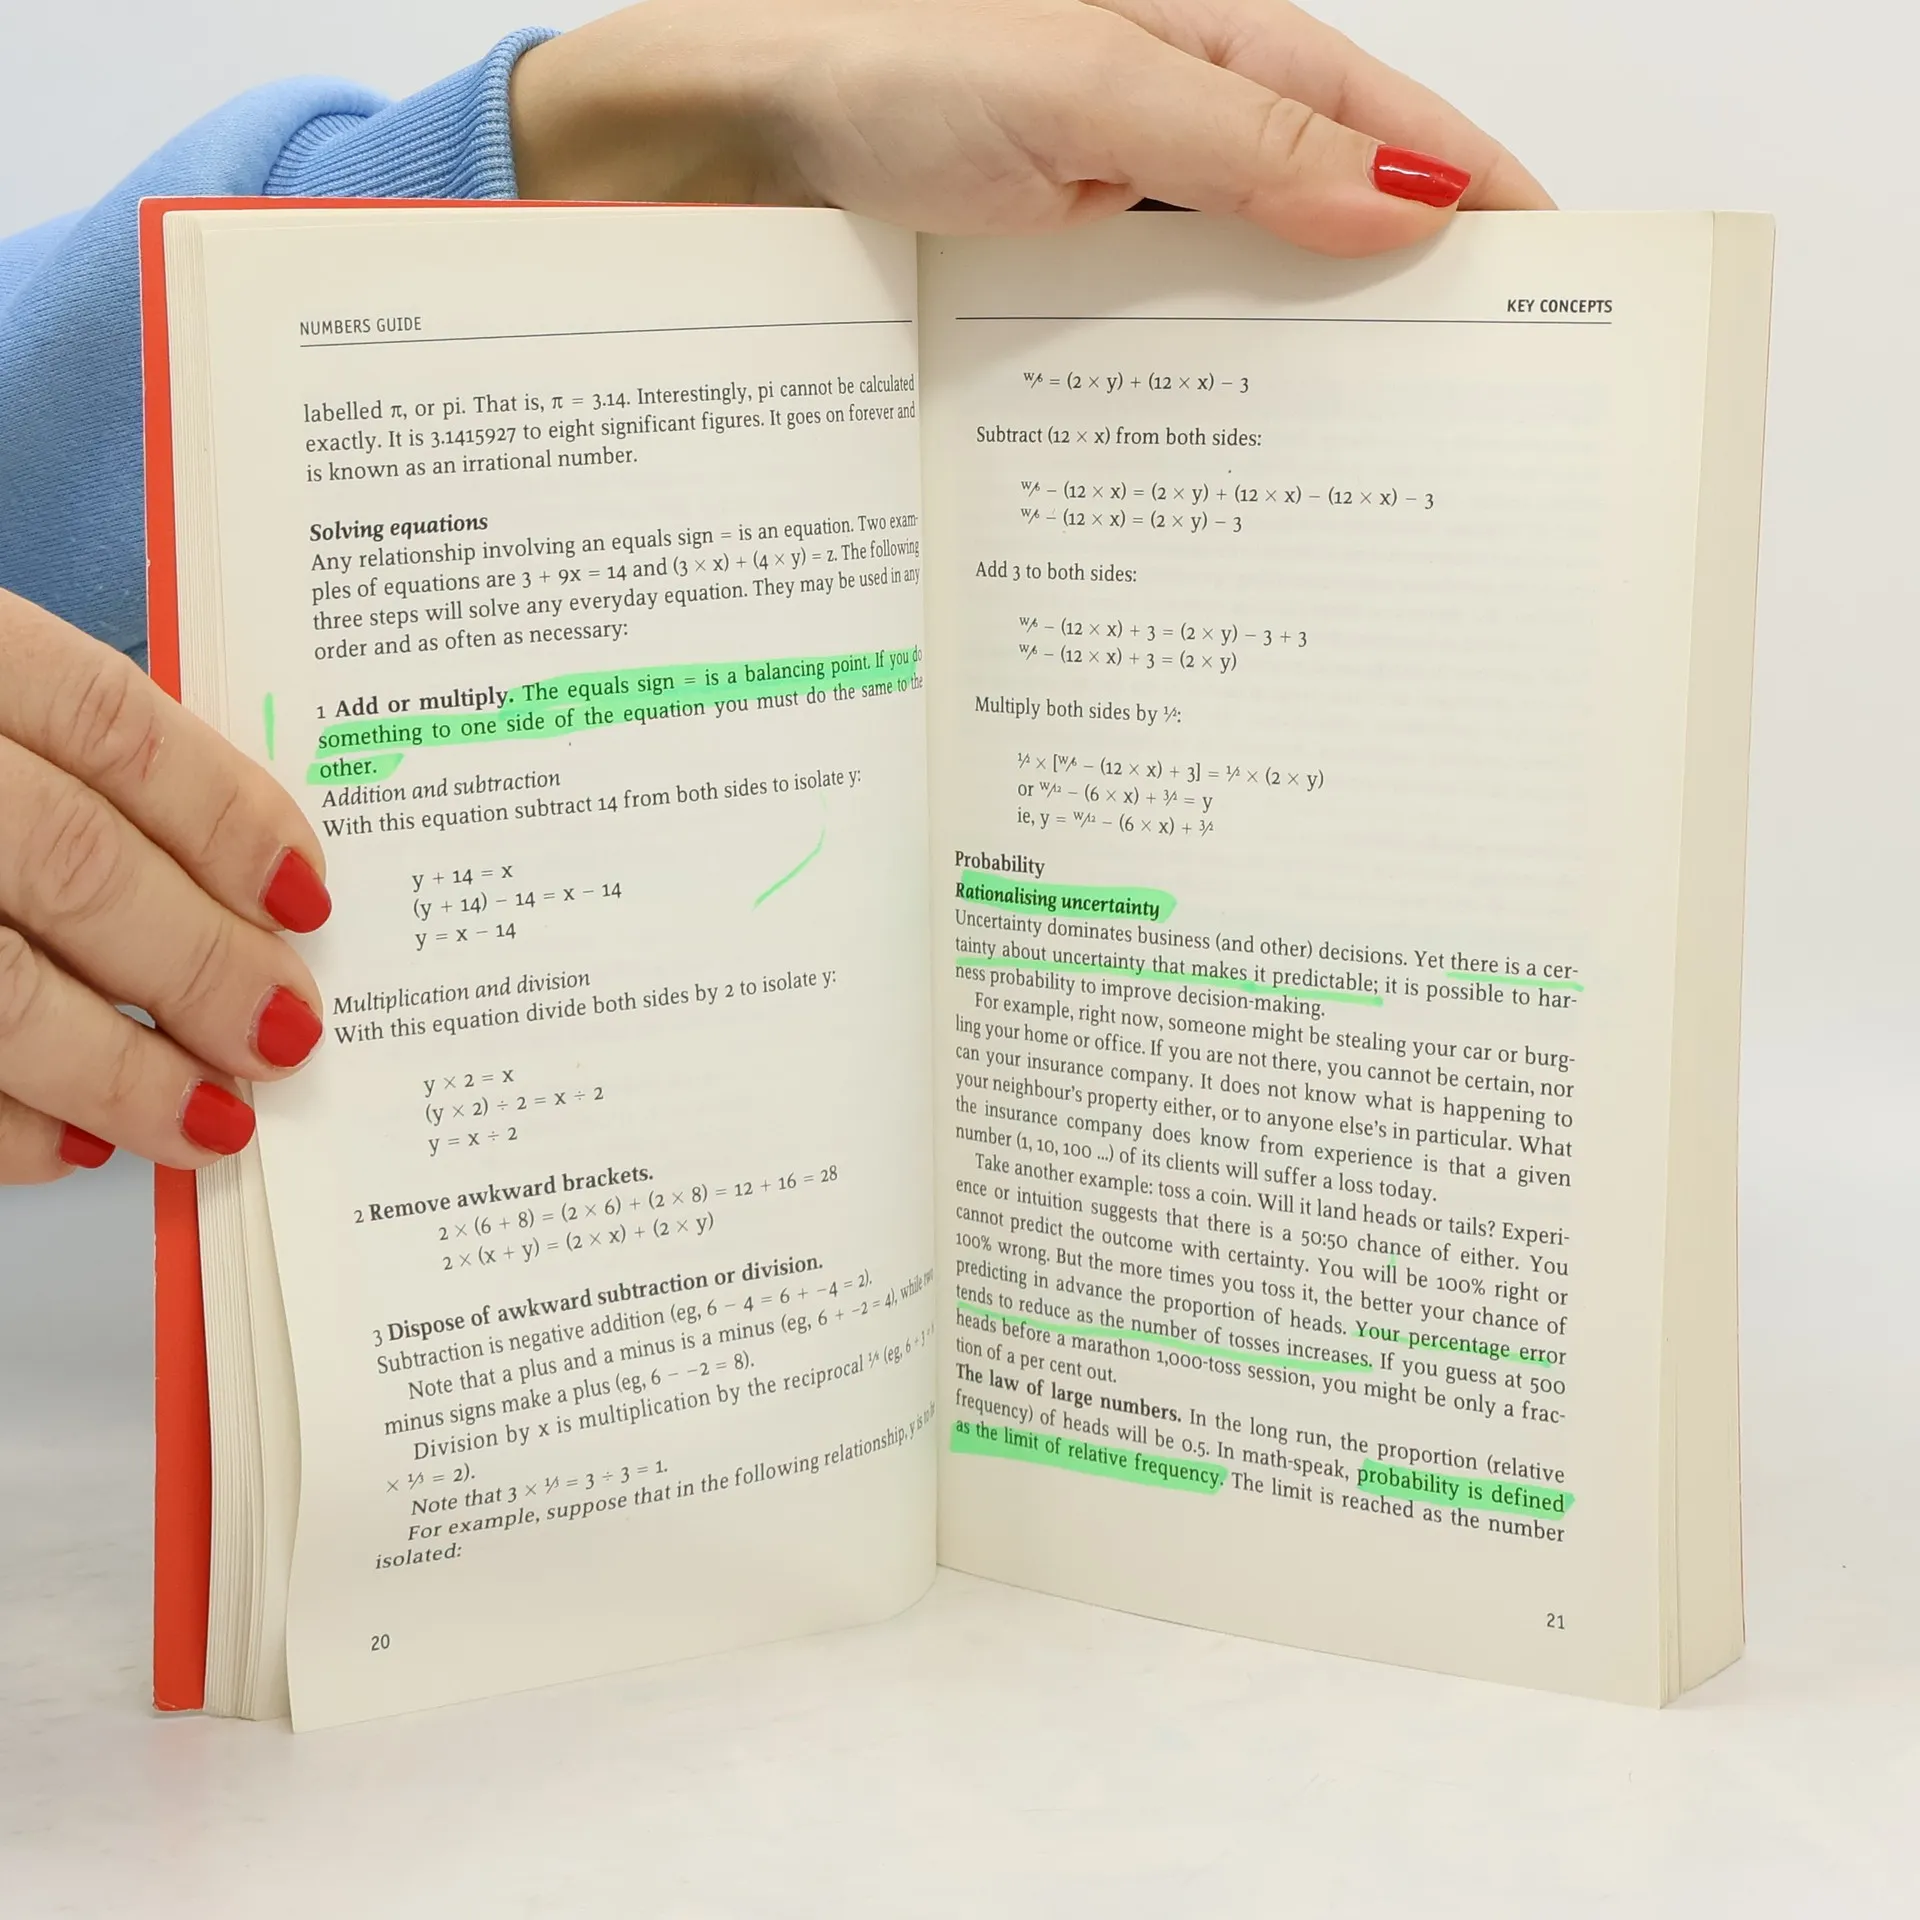 NUMBERS GUIDE
labelled π, or pi. That is, π = 3.14. Interestingly, pi cannot be calculated
exactly. It is 3.1415927 to eight significant figures. It goes on forever and
is known as an irrational number.
Solving equations
Any relationship involving an equals sign = is an equation. Two exam-
ples of equations are 3 + 9x = 14 and (3 × x) + (4 × y) = z. The following
three steps will solve any everyday equation. They may be used in any
order and as often as necessary:
1 Add or multiply. The equals sign = is a balancing point. If you do
something to one side of the equation you must do the same to the
other.
Addition and subtraction
With this equation subtract 14 from both sides to isolate y:
y + 14 = x
(y + 14) − 14 = x − 14
y = x − 14
Multiplication and division
With this equation divide both sides by 2 to isolate y:
y × 2 = x
(y × 2) ÷ 2 = x ÷ 2
y = x ÷ 2
2 Remove awkward brackets.
2 × (6 + 8) = (2 × 6) + (2 × 8) = 12 + 16 = 28
2 × (x + y) = (2 × x) + (2 × y)
3 Dispose of awkward subtraction or division.
Subtraction is negative addition (eg, 6 − 4 = 6 + −4 = 2).
Note that a plus and a minus is a minus (eg, 6 + −2 = 4), while two
minus signs make a plus (eg, 6 − −2 = 8).
Division by x is multiplication by the reciprocal (eg, 6 ÷ 3 =
× 1/3 = 2).
Note that 3 × 1/3 = 3 ÷ 3 = 1.
For example, suppose that in the following relationship, y is to be
isolated:
20
KEY CONCEPTS
w/6 = (2 × y) + (12 × x) − 3
Subtract (12 × x) from both sides:
w/6 − (12 × x) = (2 × y) + (12 × x) − (12 × x) − 3
w/6 − (12 × x) = (2 × y) − 3
Add 3 to both sides:
w/6 − (12 × x) + 3 = (2 × y) − 3 + 3
w/6 − (12 × x) + 3 = (2 × y)
Multiply both sides by 1/2:
1/2 × [w/6 − (12 × x) + 3] = 1/2 × (2 × y)
or w/12 − (6 × x) + 3/2 = y
ie, y = w/12 − (6 × x) + 3/2
Probability
Rationalising uncertainty
Uncertainty dominates business (and other) decisions. Yet there is a cer-
tainty about uncertainty that makes it predictable; it is possible to har-
ness probability to improve decision-making.
For example, right now, someone might be stealing your car or burg-
ling your home or office. If you are not there, you cannot be certain, nor
can your insurance company. It does not know what is happening to
your neighbour's property either, or to anyone else's in particular. What
the insurance company does know from experience is that a given
number (1, 10, 100 ...) of its clients will suffer a loss today.
Take another example: toss a coin. Will it land heads or tails? Experi-
ence or intuition suggests that there is a 50:50 chance of either. You
cannot predict the outcome with certainty. You will be 100% right or
100% wrong. But the more times you toss it, the better your chance of
predicting in advance the proportion of heads. Your percentage error
tends to reduce as the number of tosses increases. If you guess at 500
heads before a marathon 1,000-toss session, you might be only a frac-
tion of a per cent out.
The law of large numbers. In the long run, the proportion (relative
frequency) of heads will be 0.5. In math-speak, probability is defined
as the limit of relative frequency. The limit is reached as the number
21